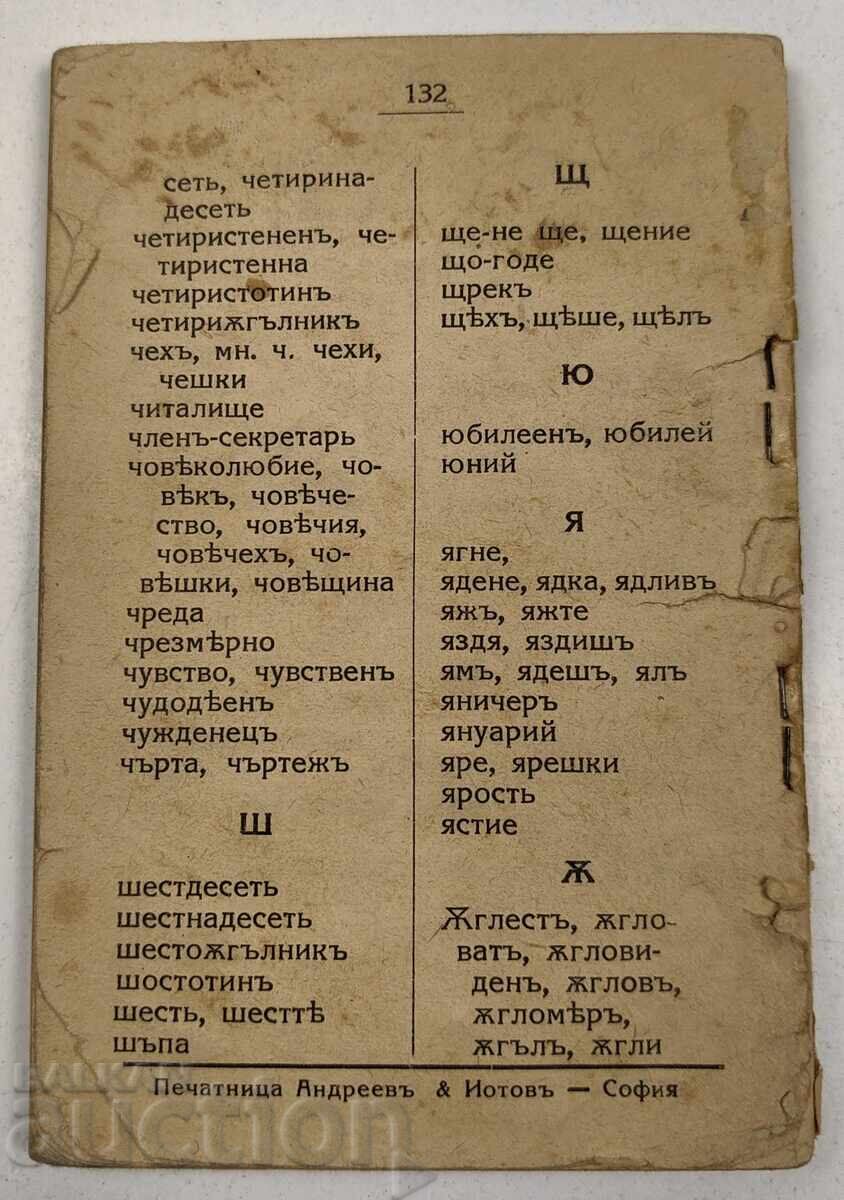 132
сеть, четирина-
десеть
четиристененъ, че-
тиристенна
четиристотинъ
четириѫгълникъ
чехъ, мн. ч. чехи,
чешки
читалище
членъ-секретарь
човѣколюбие, чо-
вѣкъ, човѣче-
ство, човѣчия,
човѣчехъ, чо-
вѣшки, човѣщина
чреда
чрезмѣрно
чувство, чувственъ
чудодѣенъ
чужденецъ
чърта, чъртежъ
Ш
шестдесеть
шестнадесеть
шестоѫгълникъ
шостотинъ
шесть, шесттѣ
шъпа
Щ
ще-не ще, щение
що-годе
щрекъ
щѣхъ, щѣше, щѣлъ
Ю
юбилеенъ, юбилей
юний
Я
ягне,
ядене, ядка, ядливъ
яжъ, яжте
яздя, яздишъ
ямъ, ядешъ, ялъ
яничеръ
януарий
яре, ярешки
ярость
ястие
Ѫ
Ѫглестъ, ѫгло-
ватъ, ѫглови-
денъ, ѫгловъ,
ѫгломѣръ,
ѫгълъ, ѫгли
Печатница Андреевъ & Иотовъ — София
БАЛКАН
auction